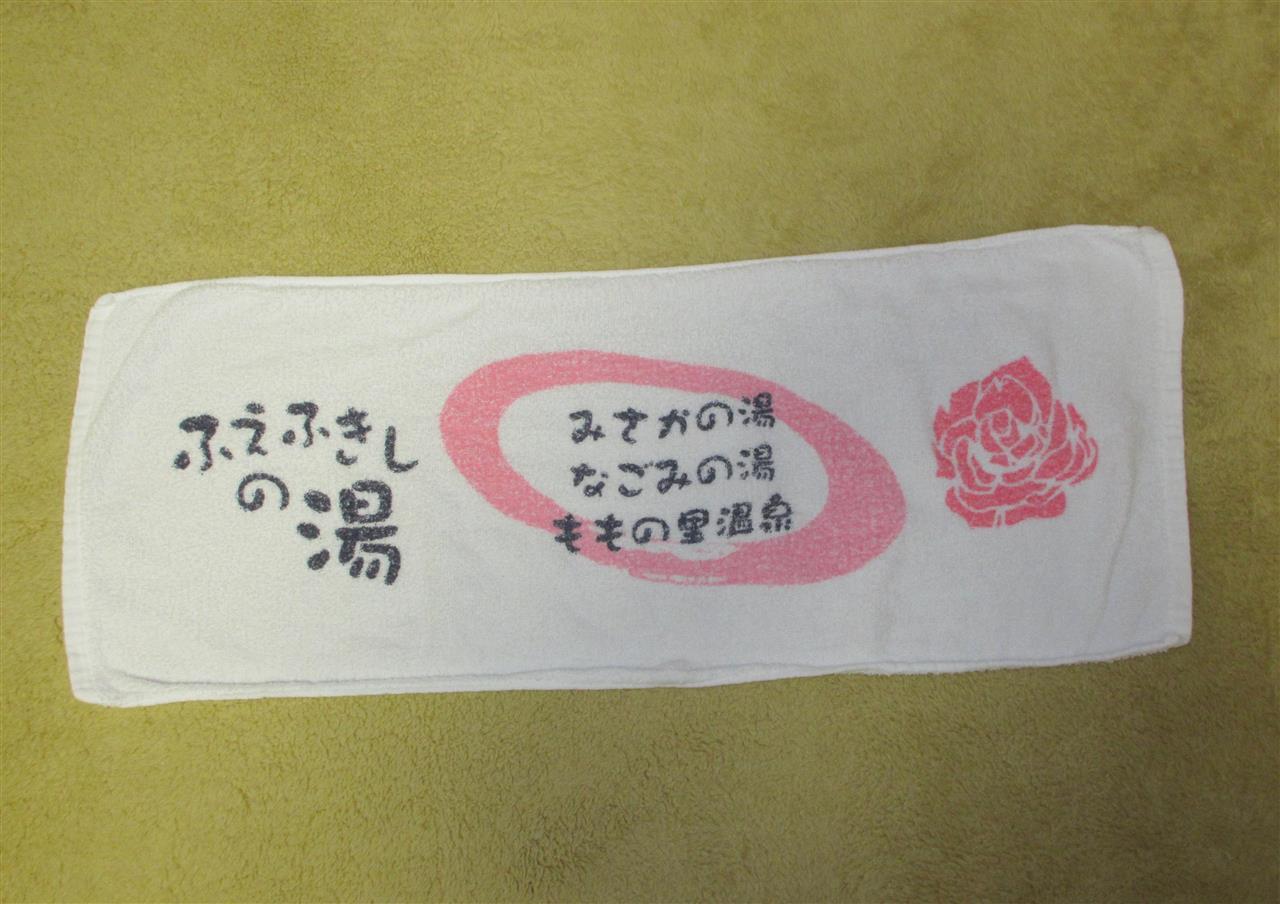 ふえふきし
の湯
みさかの湯
なごみの湯
ももの里温泉